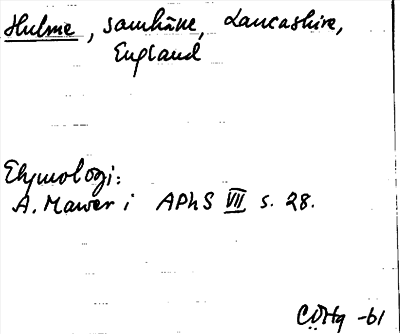 Hulme, samhälle, Lancashire,
England
Etymologi:
A. Mawer i APhS VII s. 28.
CÖHg -61